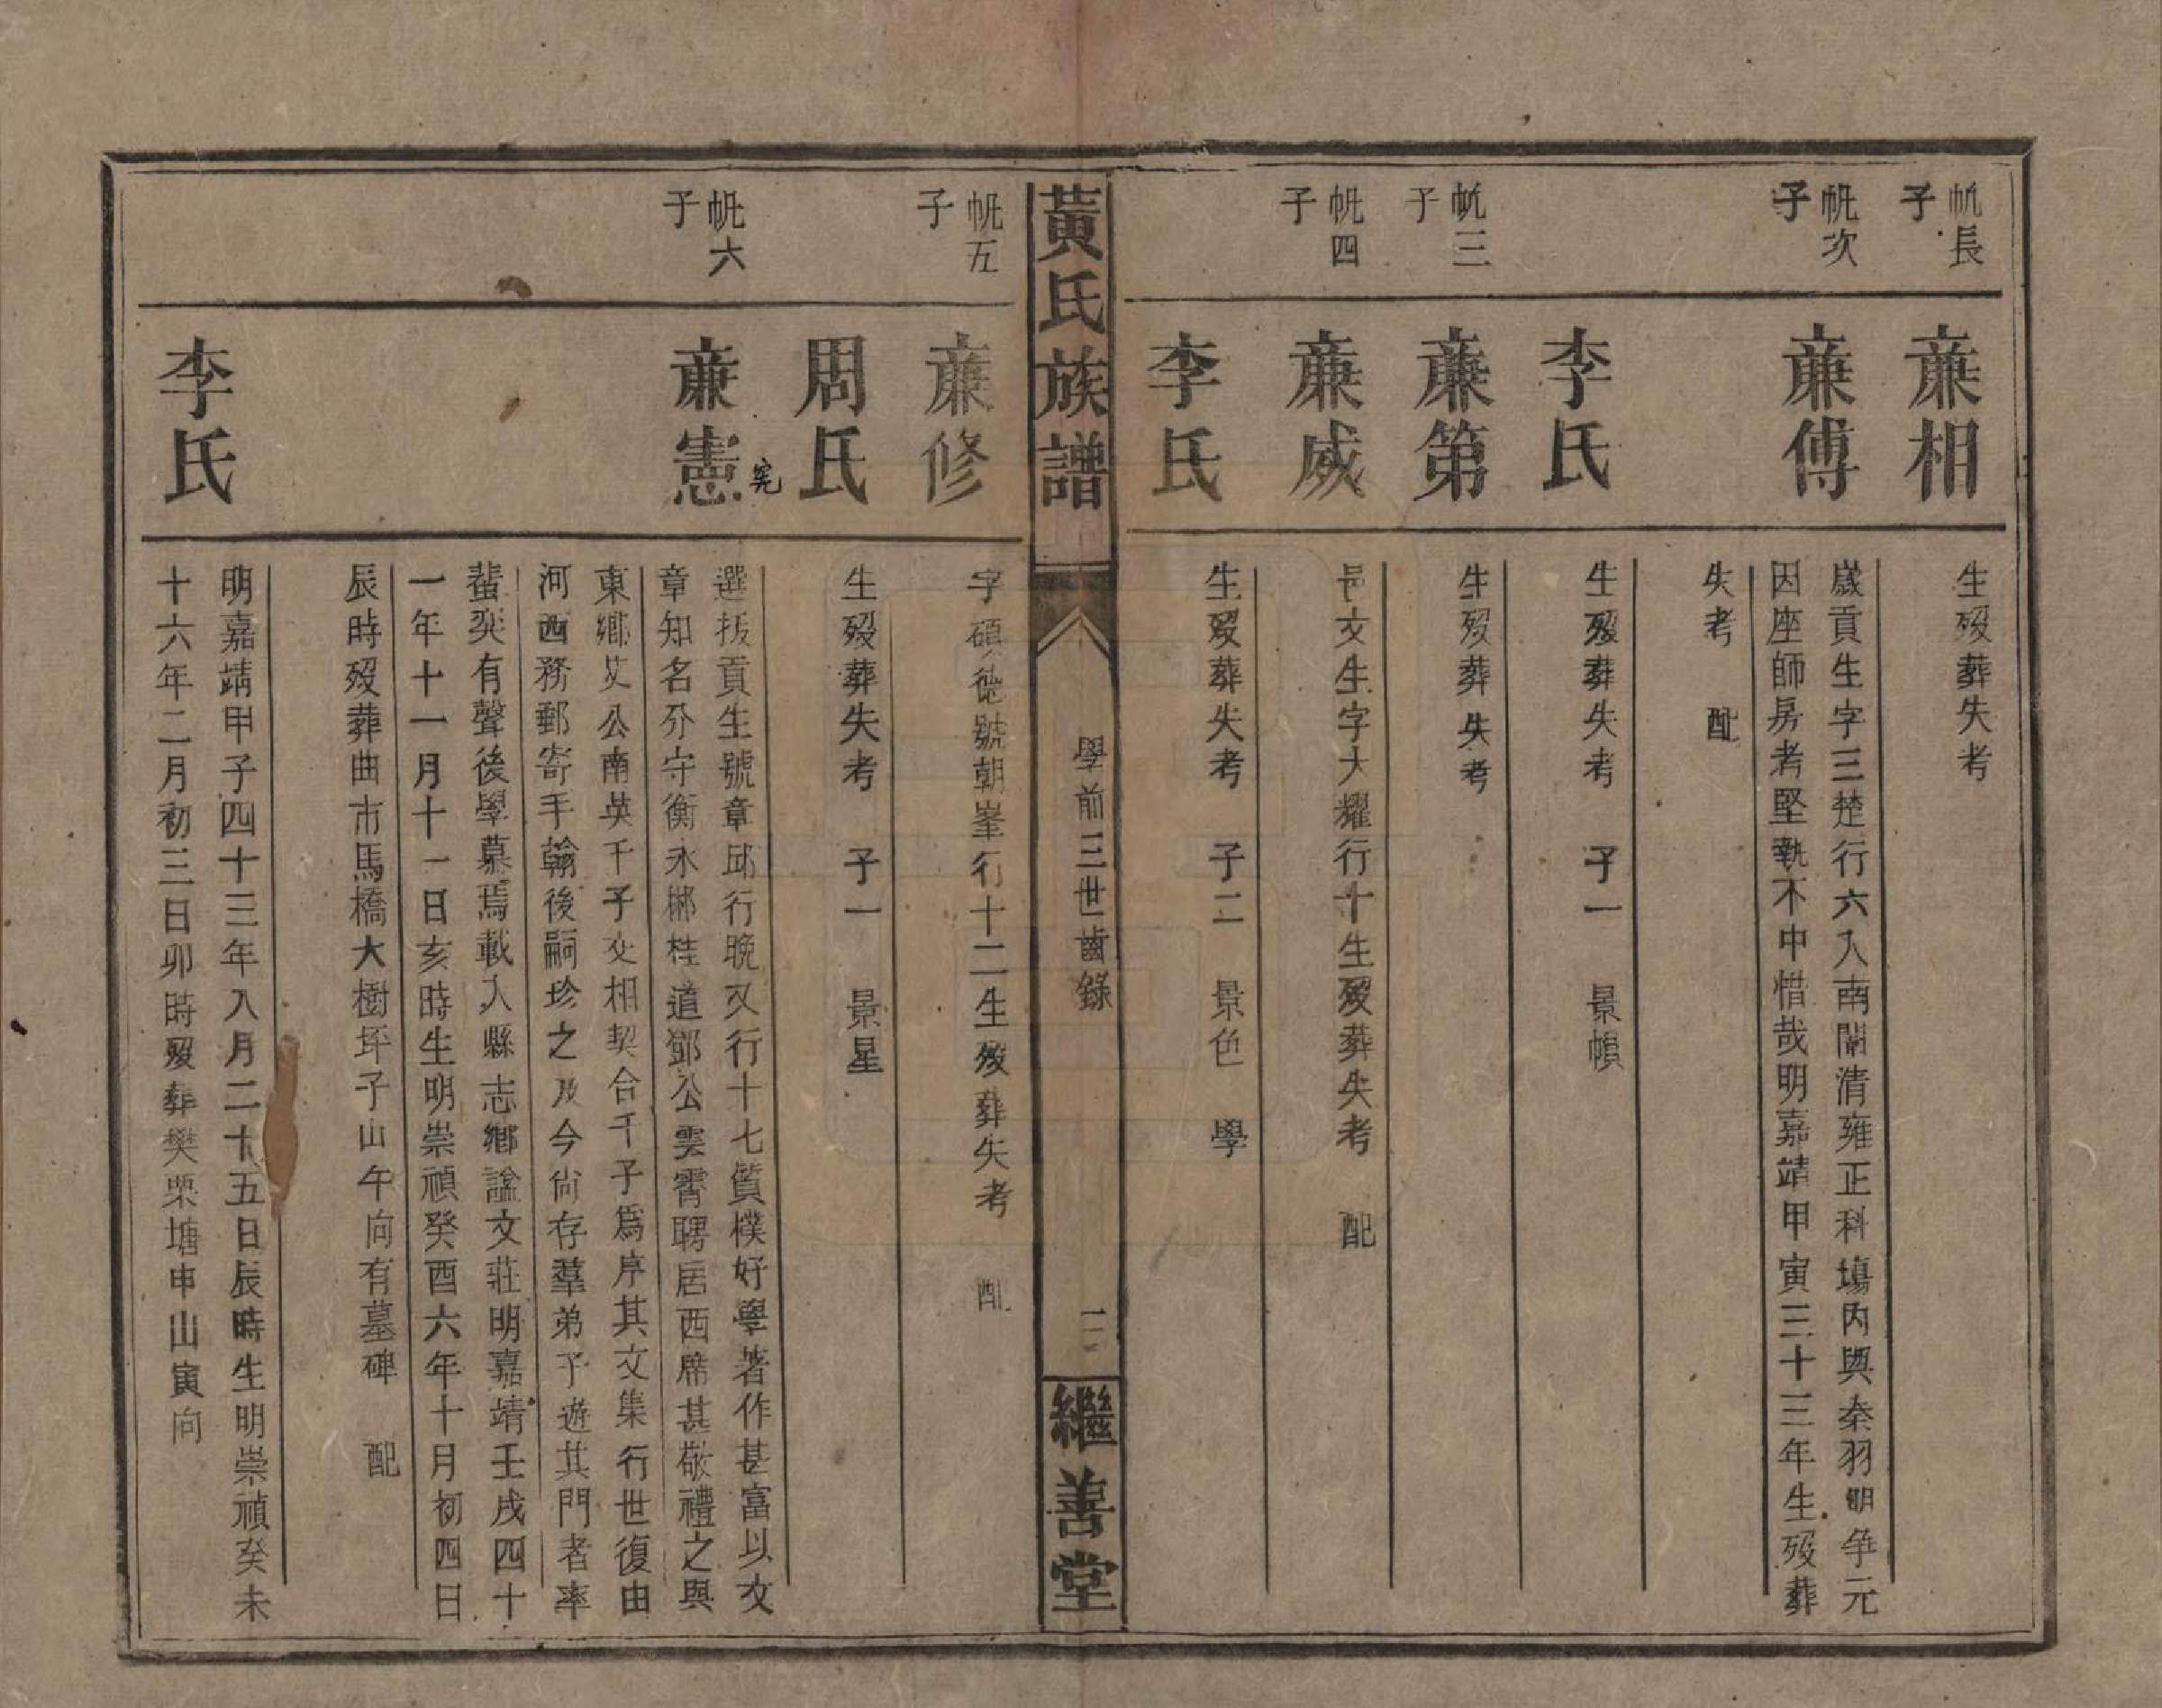 帆長子
亷相
生殁葬失考
帆次子
亷傅
歲貢生字三楚行六入南闈清雍正科場內與秦羽明爭元
因座師房考堅執不中惜哉明嘉靖甲寅三十三年生殁葬
失考 配
李氏
生殁葬失考 子一 景幁
帆三子
亷第
生殁葬失考
帆四子
亷威
邑文生字大耀行十生殁葬失考 配
李氏
生殁葬失考 子二 景色 學
黃氏族譜
學前三世齒錄
二
繼善堂
帆五子
亷修
字碩德號朝峯行十二生殁葬失考 配
周氏
生殁葬失考 子一 景星
帆六子
亷憲
宪
選拔貢生號章邱行晚又行十七質樸好學著作甚富以文
章知名分守衡永郴桂道鄧公雲霄聘居西席甚敬禮之與
東鄉艾公南英千子交相契合千子爲序其文集行世復由
河西務郵寄手翰後嗣珍之及今尙存羣弟子遊其門者率
蜚英有聲後學慕焉載入縣志鄉諡文莊明嘉靖壬戌四十
一年十一月十一日亥時生明崇禎癸酉六年十月初四日
辰時殁葬曲市馬橋大樹坪子山午向有墓碑 配
李氏
明嘉靖甲子四十三年八月二十五日辰時生明崇禎癸未
十六年二月初三日卯時殁葬樊栗塘申山寅向